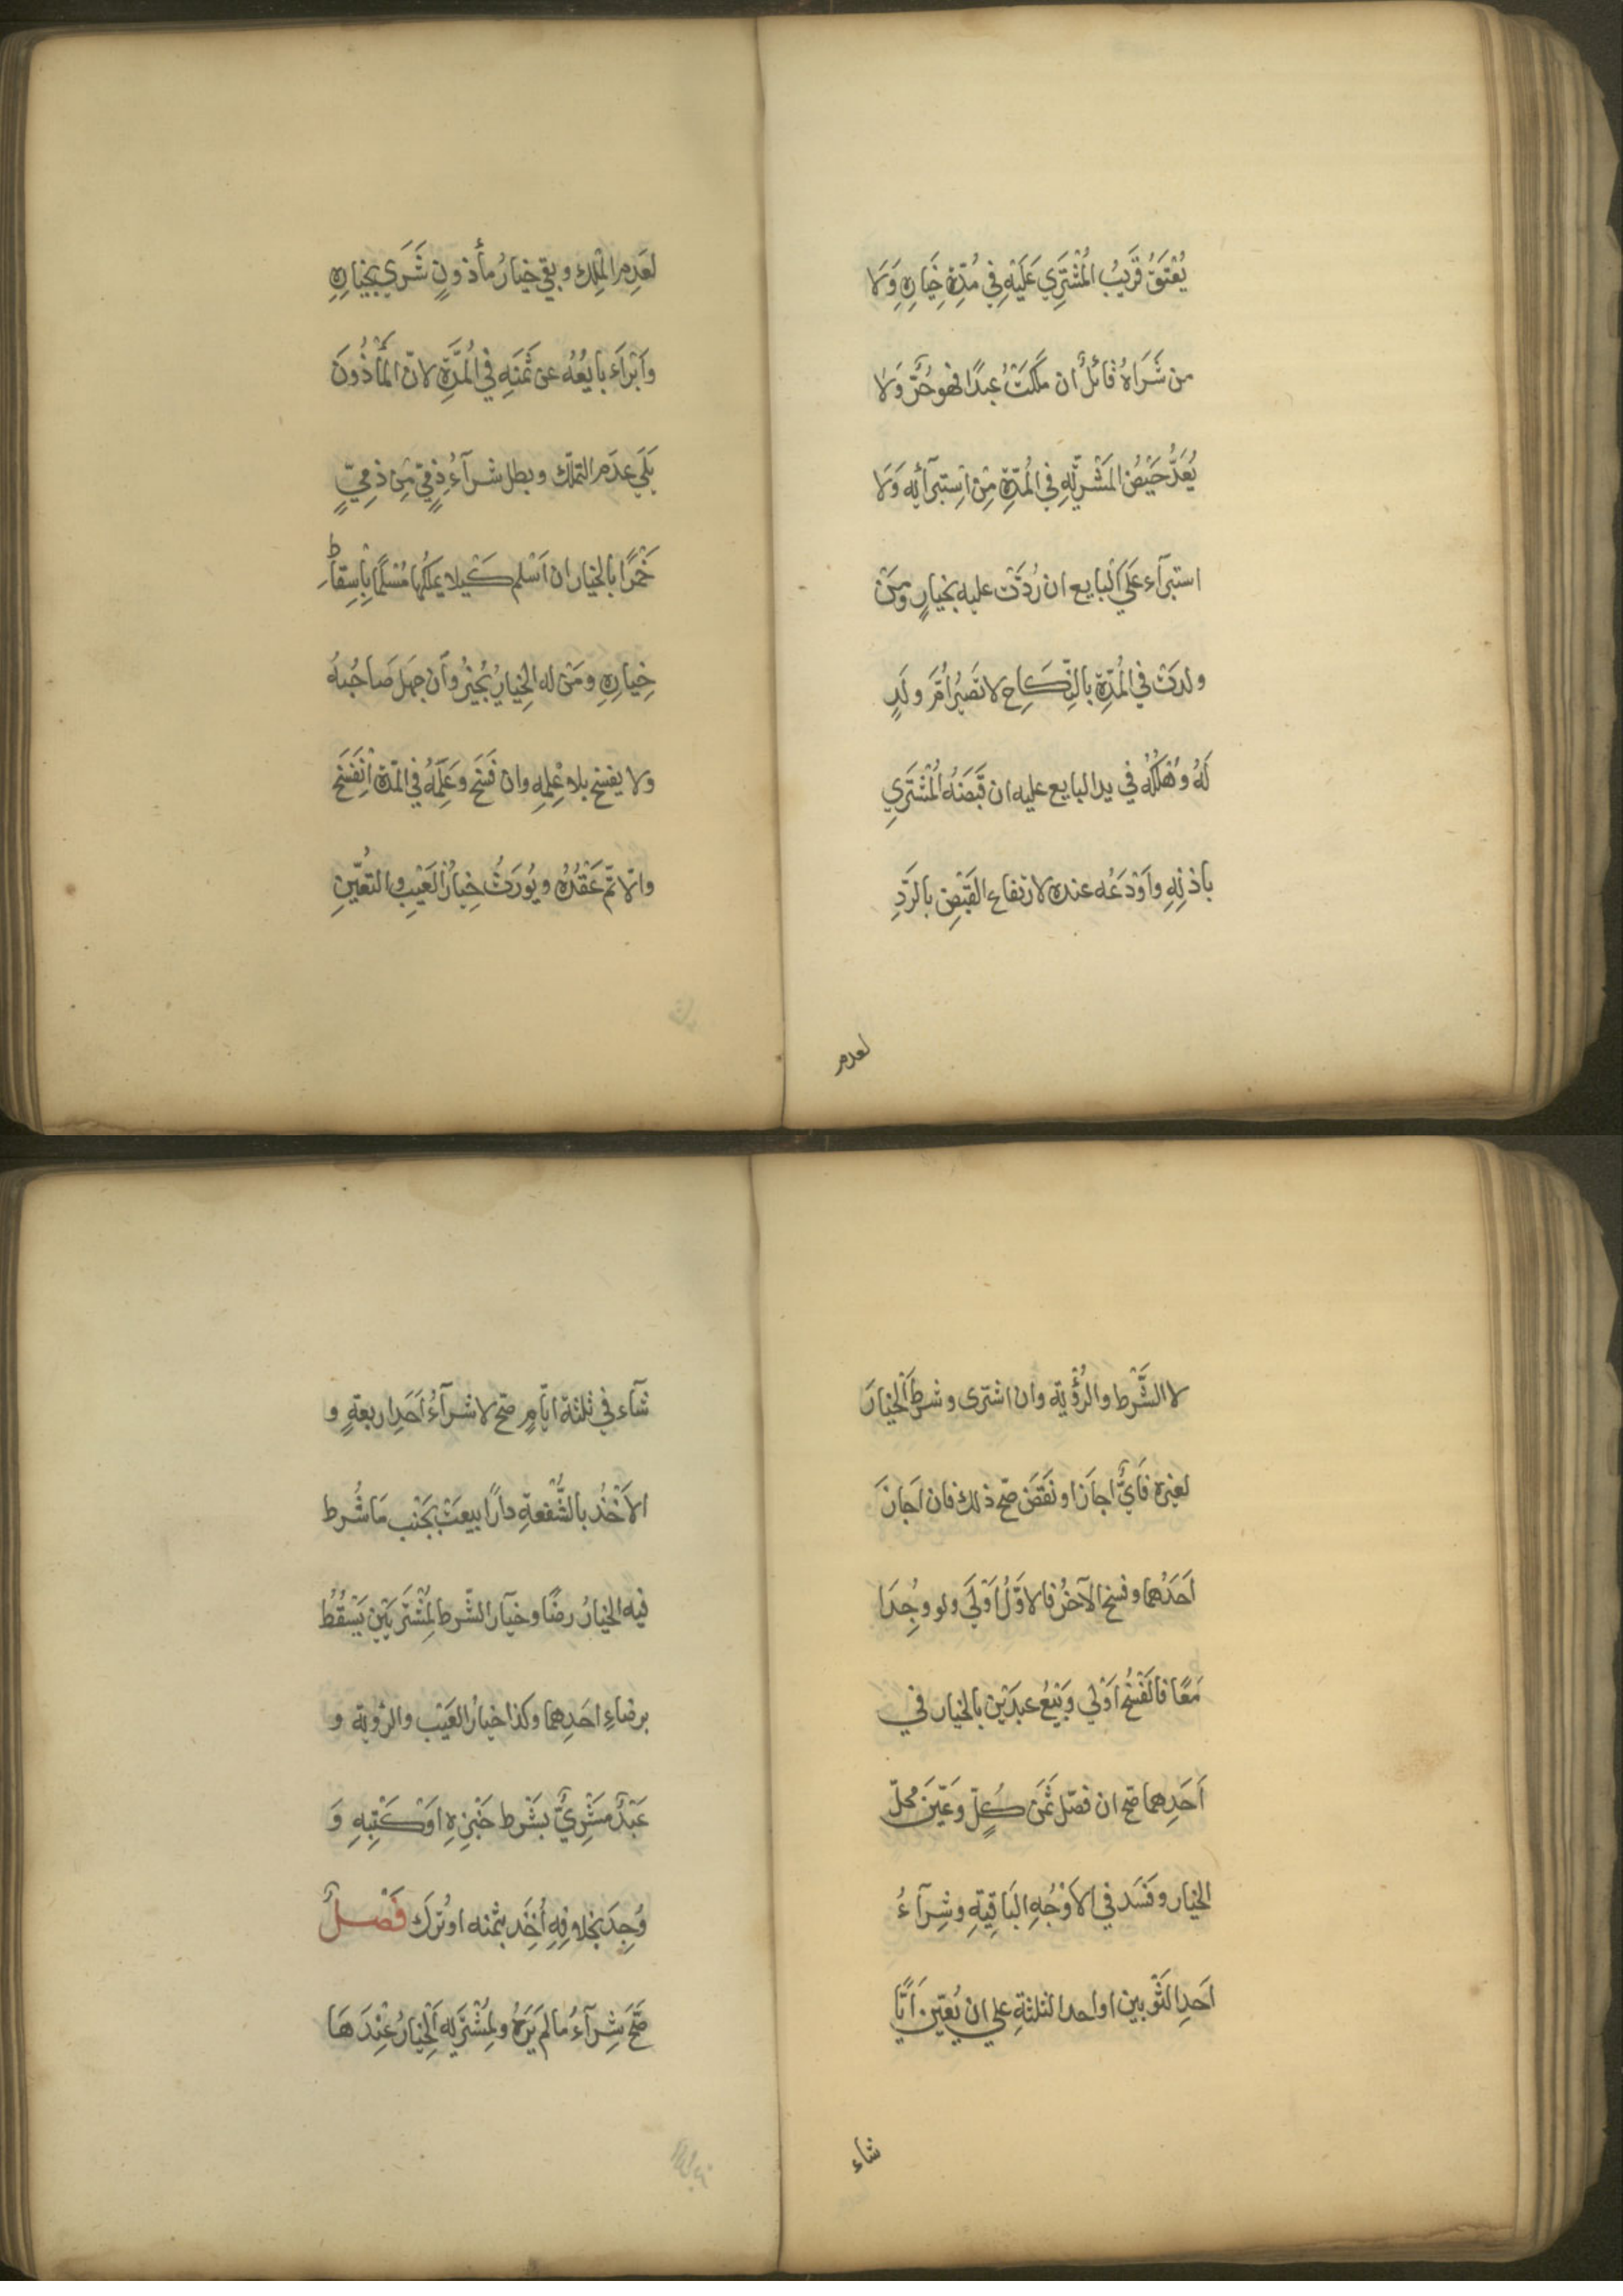 يُعْتَقُ قَرِيبُ الْمُشْتَرِي عَلَيْهِ فِي مُدَّةِ خِيَارِهِ وَلَا
من شَرَاهُ قَائلٌ ان مَلَكتُ عبدًا فهو حُرٌّ وَلا
يُعَدُّ حَيْضُ المَشْرِيَّةِ في المُدَّةِ مِنْ اسْتِبرَآئِه وَلا
استبرآء عَلَى البايع ان رُدَّتْ عليه بخيارٍ ومَنْ
ولدَتْ في المُدَّةِ بالنِّكَاحِ لا تَصيرُ اُمَّ ولَدٍ
لَهُ وهُلْكُهُ في يد البايع عليه ان قَبَضَهُ الْمُشْتَرِي
باذنِهِ واَوْدَعُه عنده لارتفاع القَبْضِ بالرَّدِّ
لعدم
لعَدِم المِلْك وبقي خيارُ مأذونٍ شَرَى بِخِيَارِهِ
وَاَبْرَاَء بايعُهُ عن ثَمَنِهِ في المُدَّةِ لانّ المَأْذُونَ
يَلِي عدَمَ التملّك وبطل شرآءُ ذِمِّيٍّ مِنْ ذِمِيٍّ
خَمْرًا بالخيار ان اَسْلم كَيلا يملكُها مُسْلِمًا بِاِسْقَاطِ
خِيارِهِ ومَنْ له الخِيارُ يُجيزُ واَن جهلَ صَاحِبُهُ
ولا يفسخ بلا عِلمِهِ وان فَسَخَ وعَلِمَهُ في المدّة اِنْفَسَخَ
والّا تمّ عَقْدُهُ ويُورَثُ خِيارُ العَيْبِ والتعيّينِ
لا الشَّرط والرُّؤْيَةِ وان اشترى وشرطَ الْخيارَ
لغيره فَأَيٌّ اجازَ او نَقَضَ صحّ ذلك فان اَجازَ
اَحَدُهُما وفسخ الآخرُ فالاوّلُ اَوْلَى ولو وُجِدَا
مَعًا فالفَسْخُ اَوْلى وَبَيْعُ عبدَيْن بالخيار في
اَحَدِهما صحّ ان فصّل ثَمَنَ كُلٍّ وعَيَّنَ محلّ
الخيار وفَسَد في الاَوْجُهِ البَاقِيَةِ وشِرَآءُ
اَحَدِ الثَّوبين او احد الثلثةِ على ان يُعيّن اَيًّا
شاء
شآء في ثلثة ايّامٍ صحّ لا شرآءُ اَحَدِ اربعةٍ و
الاَخْذُ بالشُّفْعةِ دارًا بيعَتْ بجَنْب مَا شُرط
فيه الخيارُ رضًا وخيار الشّرط لِمُشْتَرِيَيْنِ يَسْقُطُ
برضاءِ احَدِهما وكذا خيارُ العَيْب والرؤية و
عَبْدٌ مَشْرِيٌّ بشَرْط خَبْزِهِ اَوْ كَتْبِهِ وَ
وُجِدَ بخلافِهِ اُخِذَ بثمنه او تُرِكَ فَصْلٌ
صَحّ شِرآءُ مالم يَرَهُ ولِمُشْتَرِيه الْخِيَارُ عِنْدَهَا